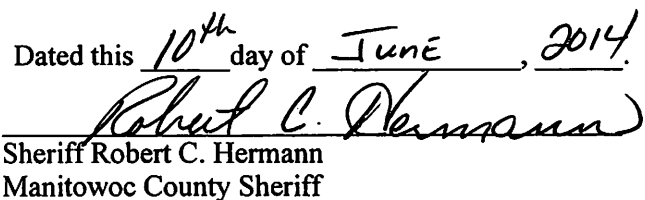 Dated this 10th day of June, 2014.
Robert C. Hermann
Sheriff Robert C. Hermann
Manitowoc County Sheriff